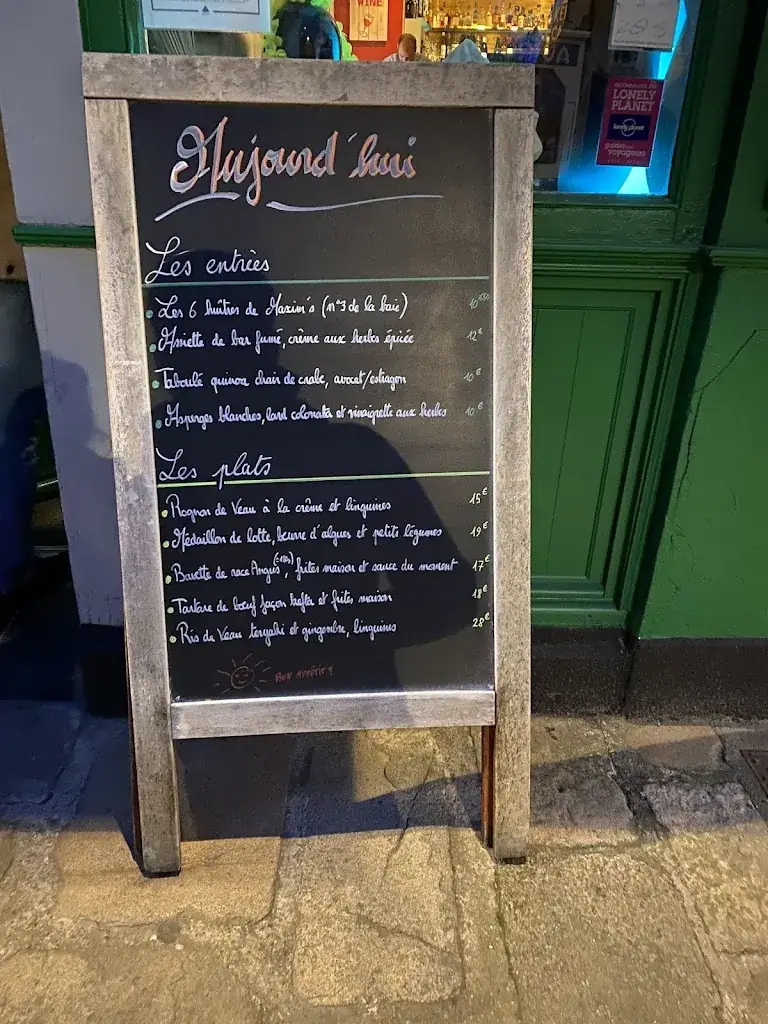 WINE
LONELY
PLANET
lonely planet
guides
voyageurs
Aujourd'hui
Les entrées
Les 6 huîtres de Maxim's (n°3 de la baie) 10€50
Assiette de bar fumé, crème aux herbes épicée 12€
Taboulé quinoa chair de crabe, avocat/estragon 10€
Asperges blanches, lard colonata et vinaigrette aux herbes 10€
Les plats
Rognon de Veau à la crème et linguines 15€
Médaillon de lotte, beurre d'algues et petits légumes 19€
Bavette de race Angus, frites maison et sauce du moment 17€
Tartare de bœuf façon kefta et frites maison 18€
Ris de Veau teryaki et gingembre, linguines 28€
BON APPÉTIT!